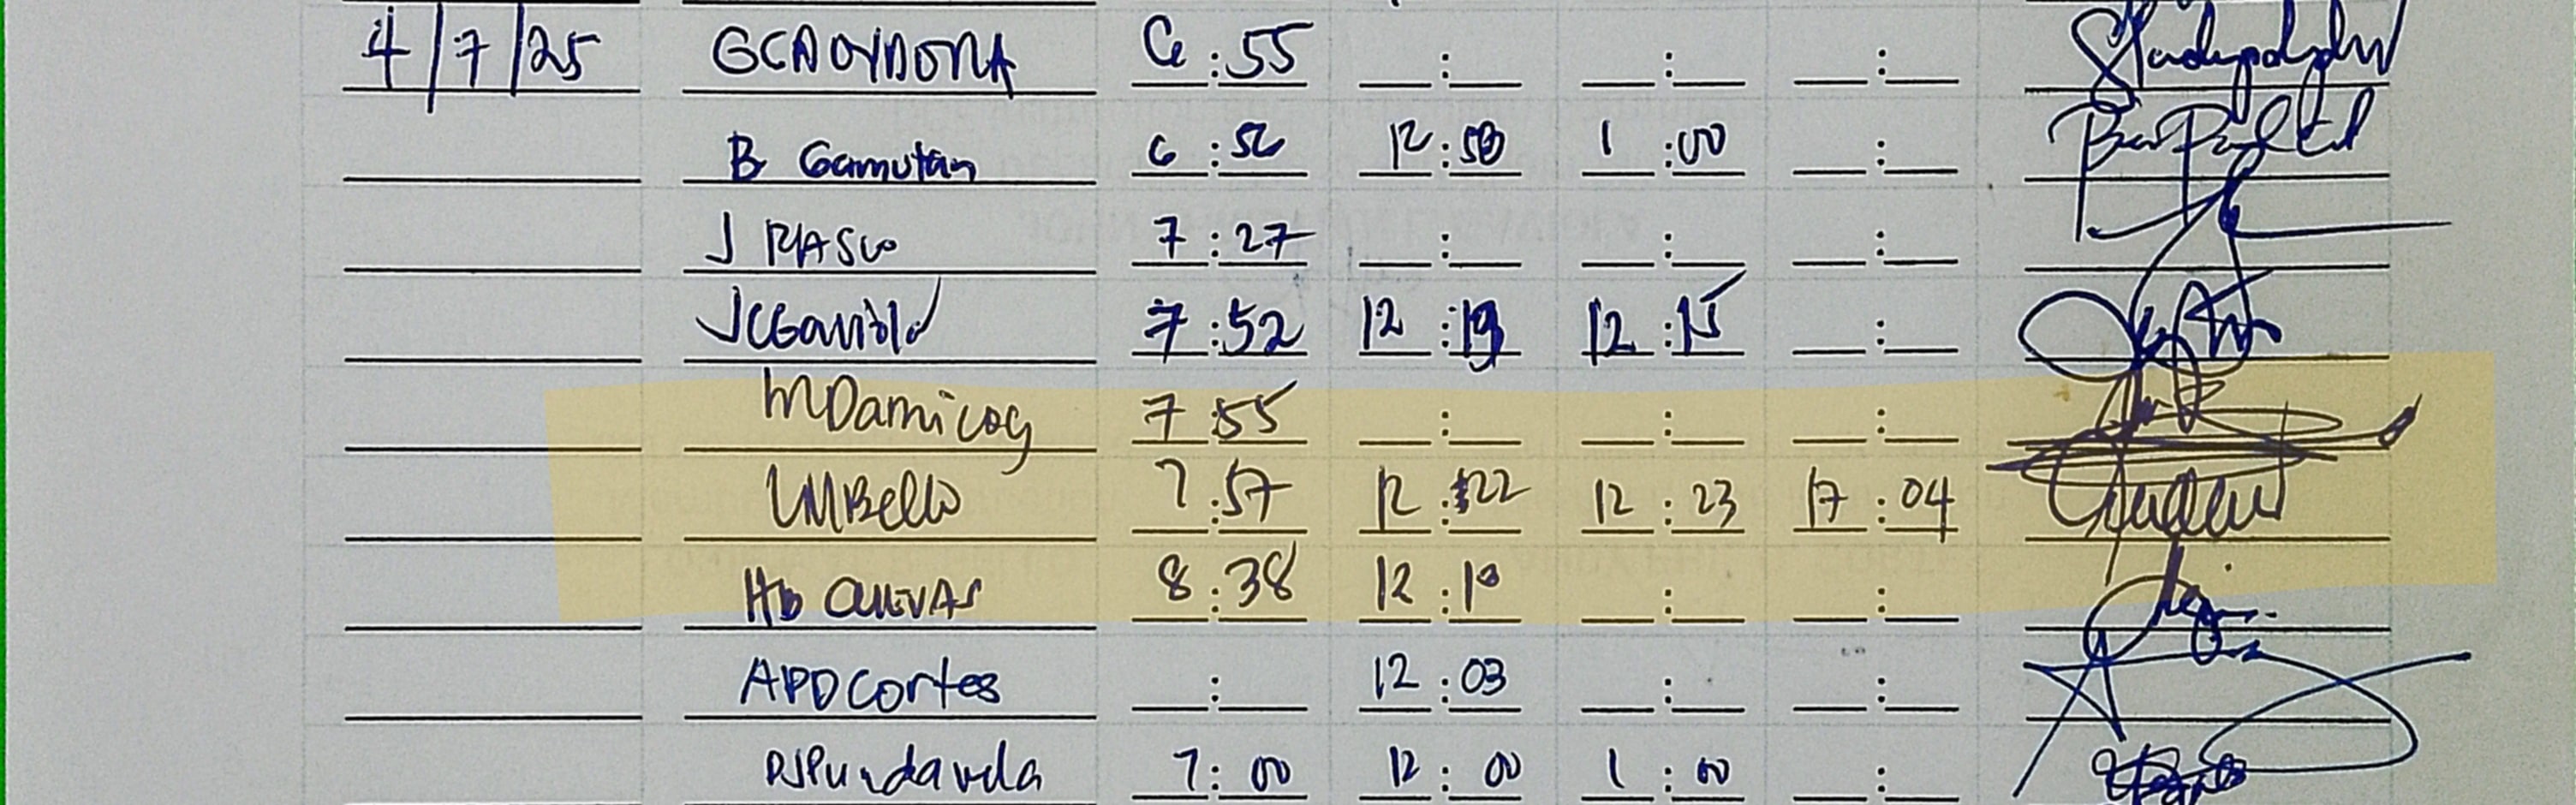 4/7/25 GCAOYDONA 6:55 : : :
B Gamutan 6:56 12:50 1:00 :
J RASCO 7:27 : : :
JCGaviola 7:52 12:13 12:15 :
MDamicog 7:55 : : :
LMBello 7:57 12:22 12:23 17:04
Hb CUEVAS 8:38 12:10 : :
APDCortes : 12:03 : :
DJPundavela 7:00 12:00 1:00 :